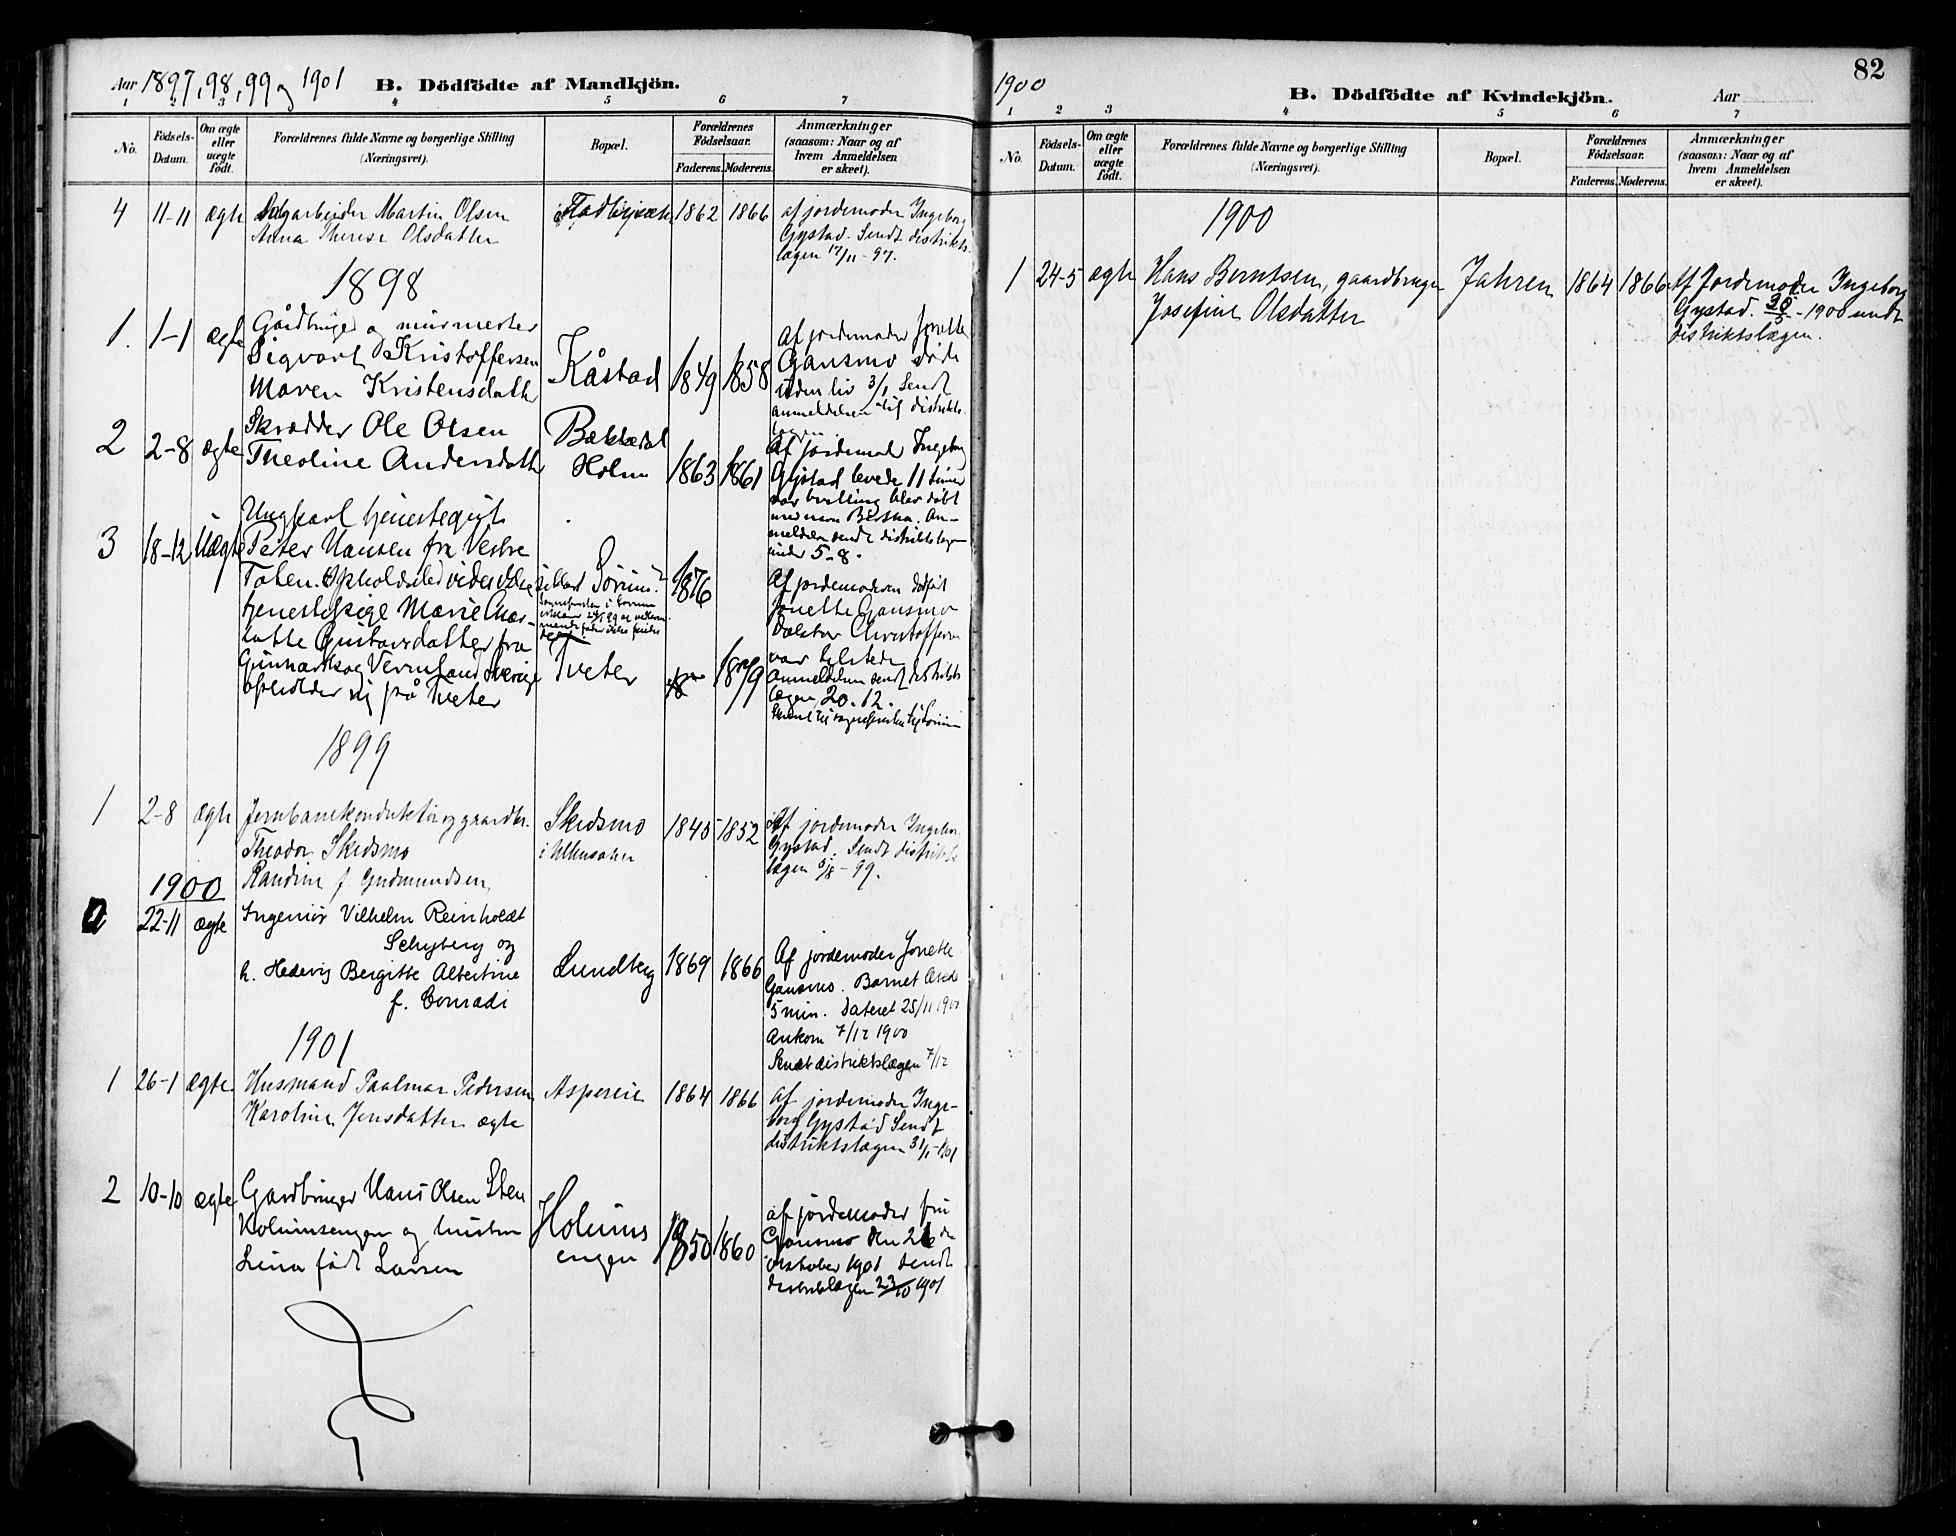 Aar 1897, 98, 99 og 1901 B. Dödfödte af Mandkjön.
1 2 3 4 5 6 7
No. Födsels-Datum. Om ægte eller uægte födt. Forældrenes fulde Navne og borgerlige Stilling (Næringsvei). Bopæl. Forældrenes Födselsaar. Faderens. Moderens. Anmærkninger (saasom: Naar og af hvem Anmeldelsen er skeet).
4 11-11 ægte Dagarbeider Martin Olsen 1862 1866 af jordemoder Ingeborg
Anna Therese Olsdatter Gystad. Sendt distrikts-
lægen 17/11-97.
1898
1. 1-1 ægte Gårdbruger og murmester Af jordemoder Jonette
Sigvart Kristoffersen Kåstad 1849 1858 Gansmo döde
Maren Kristensdatter uden liv 3/1 Sendt
anmeldelsen til distrikts-
lægen
2 2-8 ægte Skrædder Ole Olsen
Theoline Andersdatter Holm 1863 1861 Af jordemoder Ingeborg
Gystad levede 11 timer
var tvilling blev döbt
med navn Bertha. An-
meldelsen sendt distriktslægen
under 5-8.
3 18-12 Uægte Ungkarl tjenestegut
Peter Hansen fra Vestre
Toten. Opholdssted vides ikke sikkert Sörum? 1876 Af jordemoderen
tjenestepige Marie Char- Jonette Gansmo
lotte Gustavsdatter fra Doktor Christoffersen
Gunnarskog Vermland Sverige Tveter 18 1879 var tilstede
opholder sig på Tveter Anmeldelsen sendt distrikts-
lægen 20.12.
1899
1 2-8 ægte Jernbanekonduktör og gaardbr. Skedsmo 1845 1852 Af jordemoder Ingeborg
Theodor Skedsmo i Ullensaker Gystad. Sendt distrikts-
Randine f. Gudmundsen, lægen 5/8-99.
1900
22-11 ægte Ingeniör Vilhelm Reinholdt
Schyberg og
h. Hedevig Bergitte Albertine Lundberg 1869 1866 Af jordemoder Jonette
f. Conradi Gansmo. Barnet levede
5 min. Dateret 25/11 1900
Ankom 7/12 1900
Sendt distriktslægen 7/12
1901
1 26-1 ægte Husmand Paalmar Pedersen Aspereie 1864 1866 af jordemoder Inge-
Karoline Jensdatter ægte borg Gystad Sendt
distriktslægen 31/1-1901
2 10-10 ægte Gardbruger Hans Olsen Sten Holums 1850 1860 af jordemoder fru
Holumsengen og hustru engen Gansmo den 21de
Lina född Larsen oktober 1901 sendt
distriktslægen 23/10 1901
1900 B. Dödfödte af Kvindekjön. Aar 82
1 2 3 4 5 6 7
No. Födsels-Datum. Om ægte eller uægte födt. Forældrenes fulde Navne og borgerlige Stilling (Næringsvei). Bopæl. Forældrenes Födselsaar. Faderens. Moderens. Anmærkninger (saasom: Naar og af hvem Anmeldelsen er skeet).
1900
1 24-5 ægte Hans Berntsen, gaardbruger Jahren 1864 1866 Af Jordemoder Ingeborg
Josefine Olsdatter Gystad. 30/5-1900 sendt
distriktslægen.